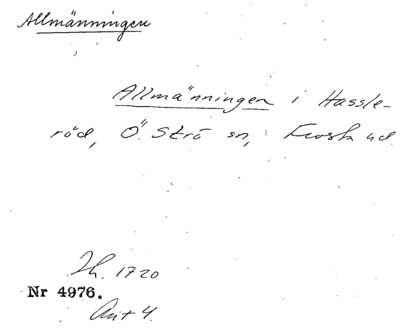 Allmänningen
Allmänningen i Hassle-
röd, Ö. Strö sn, Frosta hd.
Lh. 1720
Nr 4976.
Ant 4.